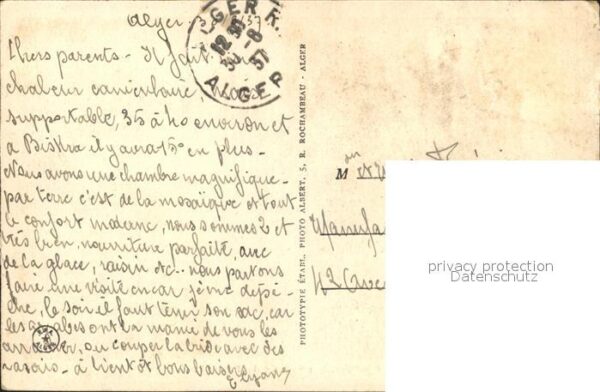 Alger,
chers parents - Il fait une
chaleur caniculaire, mais
supportable, 35 à 40 environ et
à Biskra il y aura 15° en plus -
Nous avons une chambre magnifique -
par terre c'est de la mosaïque et tout
le confort moderne, nous sommes 2 et
très bien, nourriture parfaite, avec
de la glace, raisin etc.. nous partons
faire une visite en car je me dépê-
che, le soir il faut tenir son sac, car
les arabes ont la manie de vous les
arracher, ou couper la bride avec des
rasoirs - à bientôt bons baisers
ALGER R.
12 30
30 -8
37
ALGER
PHOTOTYPIE ÉTABL. PHOTO ALBERT, 5, R. ROCHAMBEAU - ALGER
M
privacy protection
Datenschutz